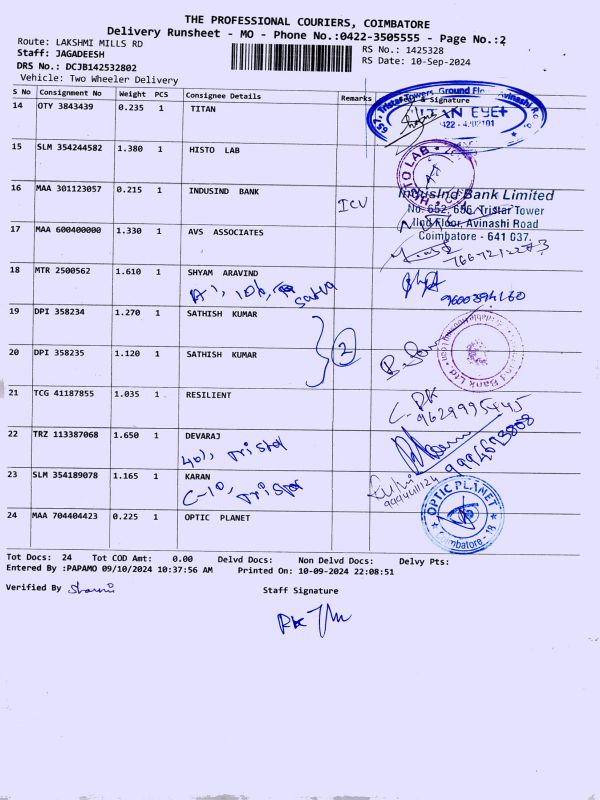 THE PROFESSIONAL COURIERS, COIMBATORE
Delivery Runsheet - MO - Phone No.:0422-3505555 - Page No.:2
Route: LAKSHMI MILLS RD
RS No.: 1425328
Staff: JAGADEESH
RS Date: 10-Sep-2024
DRS No.: DCJB142532802
Vehicle: Two Wheeler Delivery
S No Consignment No Weight PCS Consignee Details Remarks & Signature
14 OTY 3843439 0.235 1 TITAN
TITAN EYE+
15 SLM 354244582 1.380 1 HISTO LAB
HISTO LAB
16 MAA 301123057 0.215 1 INDUSIND BANK ICU
IndusInd Bank Limited
No. 652, 656, Tristar Tower
IInd Floor, Avinashi Road
Coimbatore - 641 037.
17 MAA 600400000 1.330 1 AVS ASSOCIATES
18 MTR 2500562 1.610 1 SHYAM ARAVIND
9600394160
19 DPI 358234 1.270 1 SATHISH KUMAR
2
20 DPI 358235 1.120 1 SATHISH KUMAR
21 TCG 41187855 1.035 1 RESILIENT
9629995445
22 TRZ 113387068 1.650 1 DEVARAJ
23 SLM 354189078 1.165 1 KARAN
C-10,
24 MAA 704404423 0.225 1 OPTIC PLANET
OPTIC PLANET
Coimbatore - 18
Tot Docs: 24 Tot COD Amt: 0.00 Delvd Docs: Non Delvd Docs: Delvy Pts:
Entered By :PAPAMO 09/10/2024 10:37:56 AM Printed On: 10-09-2024 22:08:51
Verified By
Staff Signature